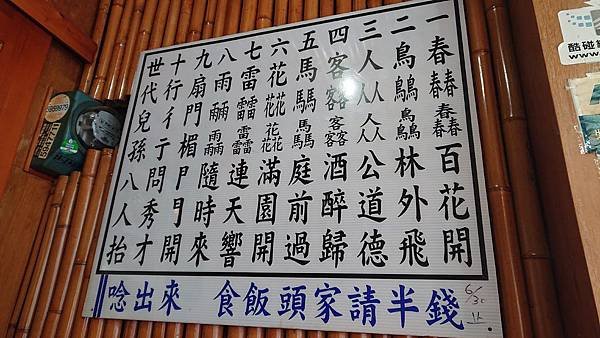 一春春春春春春春百花開
二鳥鳥鳥鳥鳥鳥林外飛
三人人人人人人人公道德
四客客客客客客客酒醉歸
五馬馬馬馬馬馬庭前過
六花花花花花花花花花滿園開
七雷雷雷雷雷雷雷連天響
八雨雨雨雨雨雨隨時來
九扇門楣門開
十行彳亍問秀才
世代兒孫八人抬
唸出來 食飯頭家請半錢
6/30
止.
酷碰